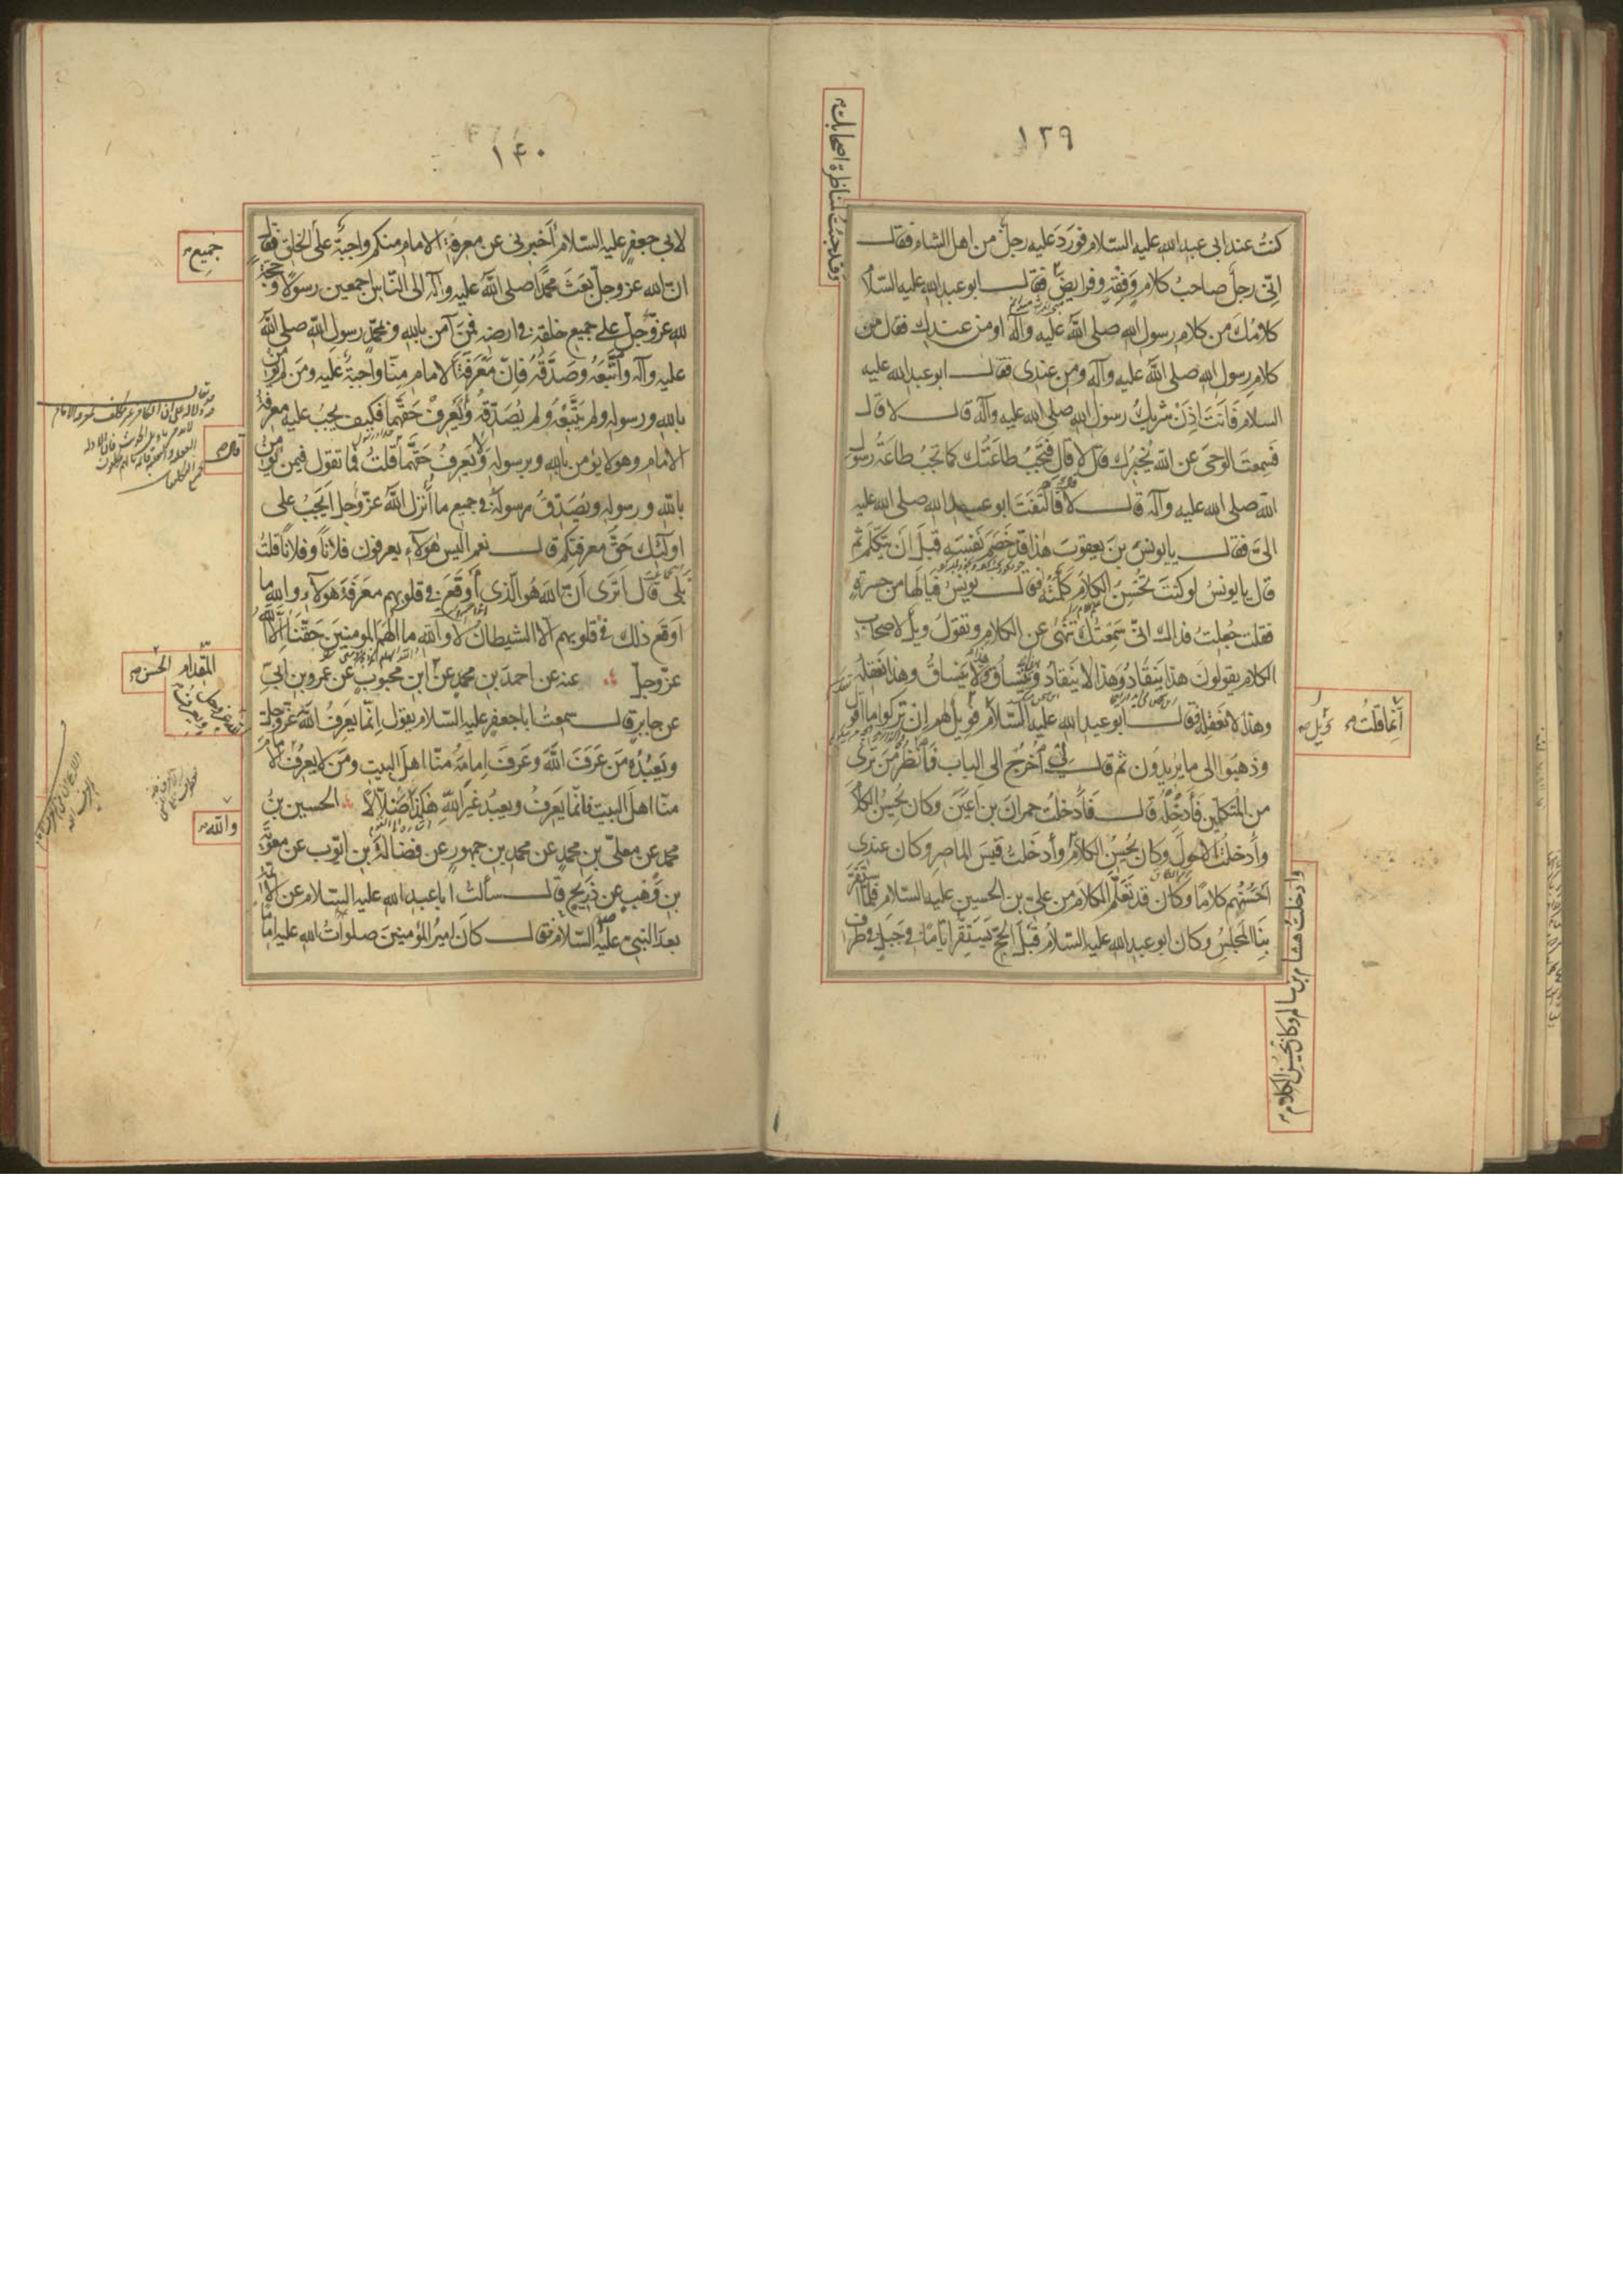 ١٢٩
كنتُ عند ابى عبد الله عليه السّلام فوَرَدَ عليه رجلٌ من اهل الشام فقال
انّى رجلٌ صاحبُ كلامٍ وفقهٍ وفرايضَ فقال ابو عبد الله عليه السّلام
كلامُكَ من كلام رسول الله صلى الله عليه وآله او من عندك فقال من
كلام رسول الله صلى الله عليه وآله ومن عندى فقال ابو عبد الله عليه
السلام فَانتَ اِذَنْ شريكُ رسول الله صلى الله عليه وآله قال لا قال
فسمعتَ الوحىَ عن الله يُخبرُك قال لا قال فتَجِبُ طاعتُك كما تجبُ طاعة رسول
الله صلى الله عليه وآله قال لا فَالتَفَتَ ابو عبد الله صلى الله عليه
الىَّ فقال يا يونسَ بنَ يعقوب هذا قد خَصَمَ نفسَه قبلَ ان يتكلّم ثم
قال يا يونسُ لو كنتَ تُحسِنُ الكلامَ كلّمتَه فقال يونسُ فيالَها من حسرةٍ
فقلت جُعِلتُ فداك انّى سمِعتُك تَنهَى عن الكلام وتقولُ ويلٌ لاصحاب
الكلام يقولون هذا ينقادُ وهذا لا ينقادُ وهذا ينساقُ وهذا لا ينساقُ وهذا نعقلُه
وهذا لا نعقلُه فقال ابو عبد الله عليه السّلام فويلٌ لهم ان تركوا ما اقول
وذهبوا الى ما يريدون ثم قال لى اُخرُج الى الباب فانظُر مَن تَرى
من المتكلّمين فَأَدخِلْه قال فَأَدخلتُ حمرانَ بن اَعيَن وكان يُحسِنُ الكلام
وأدخلتُ الاحولَ وكان يُحسِنُ الكلام وأدخلتُ قيسَ الماصر وكان عندى
احسنَهم كلامًا وكان قد تعلّم الكلامَ من علىّ بن الحسين عليه السّلام فلمّا استقرّ
بِنَا المجلسُ وكان ابو عبد الله عليه السّلامُ قبلَ الحجّ يَستَقرُّ ايّامًا فى جَبَلٍ فى طرف
وقد جئتُ لمناظرة اصحابك
انما قلتُ
ويل
وادخلت هشام بن سالم وكان يحسن الكلام
١٤٠
لابى جعفر عليه السّلام أخبرنى عن معرفة الامام منكم واجبةٌ على الخلق فقال
انّ الله عز وجل بعَثَ محمدًا صلى الله عليه وآله الى النّاس اجمعين رسولًا وحجّةً
لله عزّ وجلّ على جميع خلقه فى ارضه فمَن آمن بالله وبمحمّدٍ رسولِ الله صلى الله
عليه وآله واتّبعَه وصدّقَه فانّ معرفةَ الامام مِنّا واجبةٌ عليه ومَن لم يؤمن
بالله ورسوله ولم يتّبعْه ولم يُصدّقْه ويَعرف حقّهما فكيف يجبُ عليه معرفة
الامام وهو لا يؤمن بالله وبرسوله ويَعرفُ حقّهما قلتُ فما تقول فيمن يؤمن
بالله ورسوله ويُصدّقُ رسولَه فى جميع ما أنزل الله عزّ وجل اَيَجبُ على
اولئك حقُّ معرفتكم قال نعم اليس هولاء يعرفون فلانًا وفلانًا قلتُ
بلى قال اَترى اَنّ الله هو الّذى أوقعَ فى قلوبهم معرفةَ هولاء والله ما
اَوقع ذلك فى قلوبهم الّا الشيطانُ لا والله ما الهَم المومنين حقَّنا الّا الله
عزّ وجل عنه عن احمد بن محمدٍ عن ابن محبوبٍ عن عمرو بن ابى
عن جابرٍ قال سمعتُ ابا جعفر عليه السّلام يقول انّما يعرفُ الله عزّ وجل
ويَعبُدُه من عَرَفَ الله وعَرَفَ اِمامَه منّا اهل البيت ومَن لا يعرفُ الامام
منّا اهل البيت فانّما يَعرِفُ ويعبدُ غيرَ الله هكذا ضلالًا الحسين بنُ
محمدٍ عن معلّى بن محمدٍ عن محمد بن جمهورٍ عن فضالة بن ايّوب عن معوية
بن وَهبٍ عن ذَريحٍ قال سألتُ ابا عبد الله عليه السّلام عن الائمّة
بعدَ النبى عليه السّلام فقال كان اميرُ المؤمنين صلواتُ الله عليه امامًا
جميع
قال
المقدام
الحسن
والله